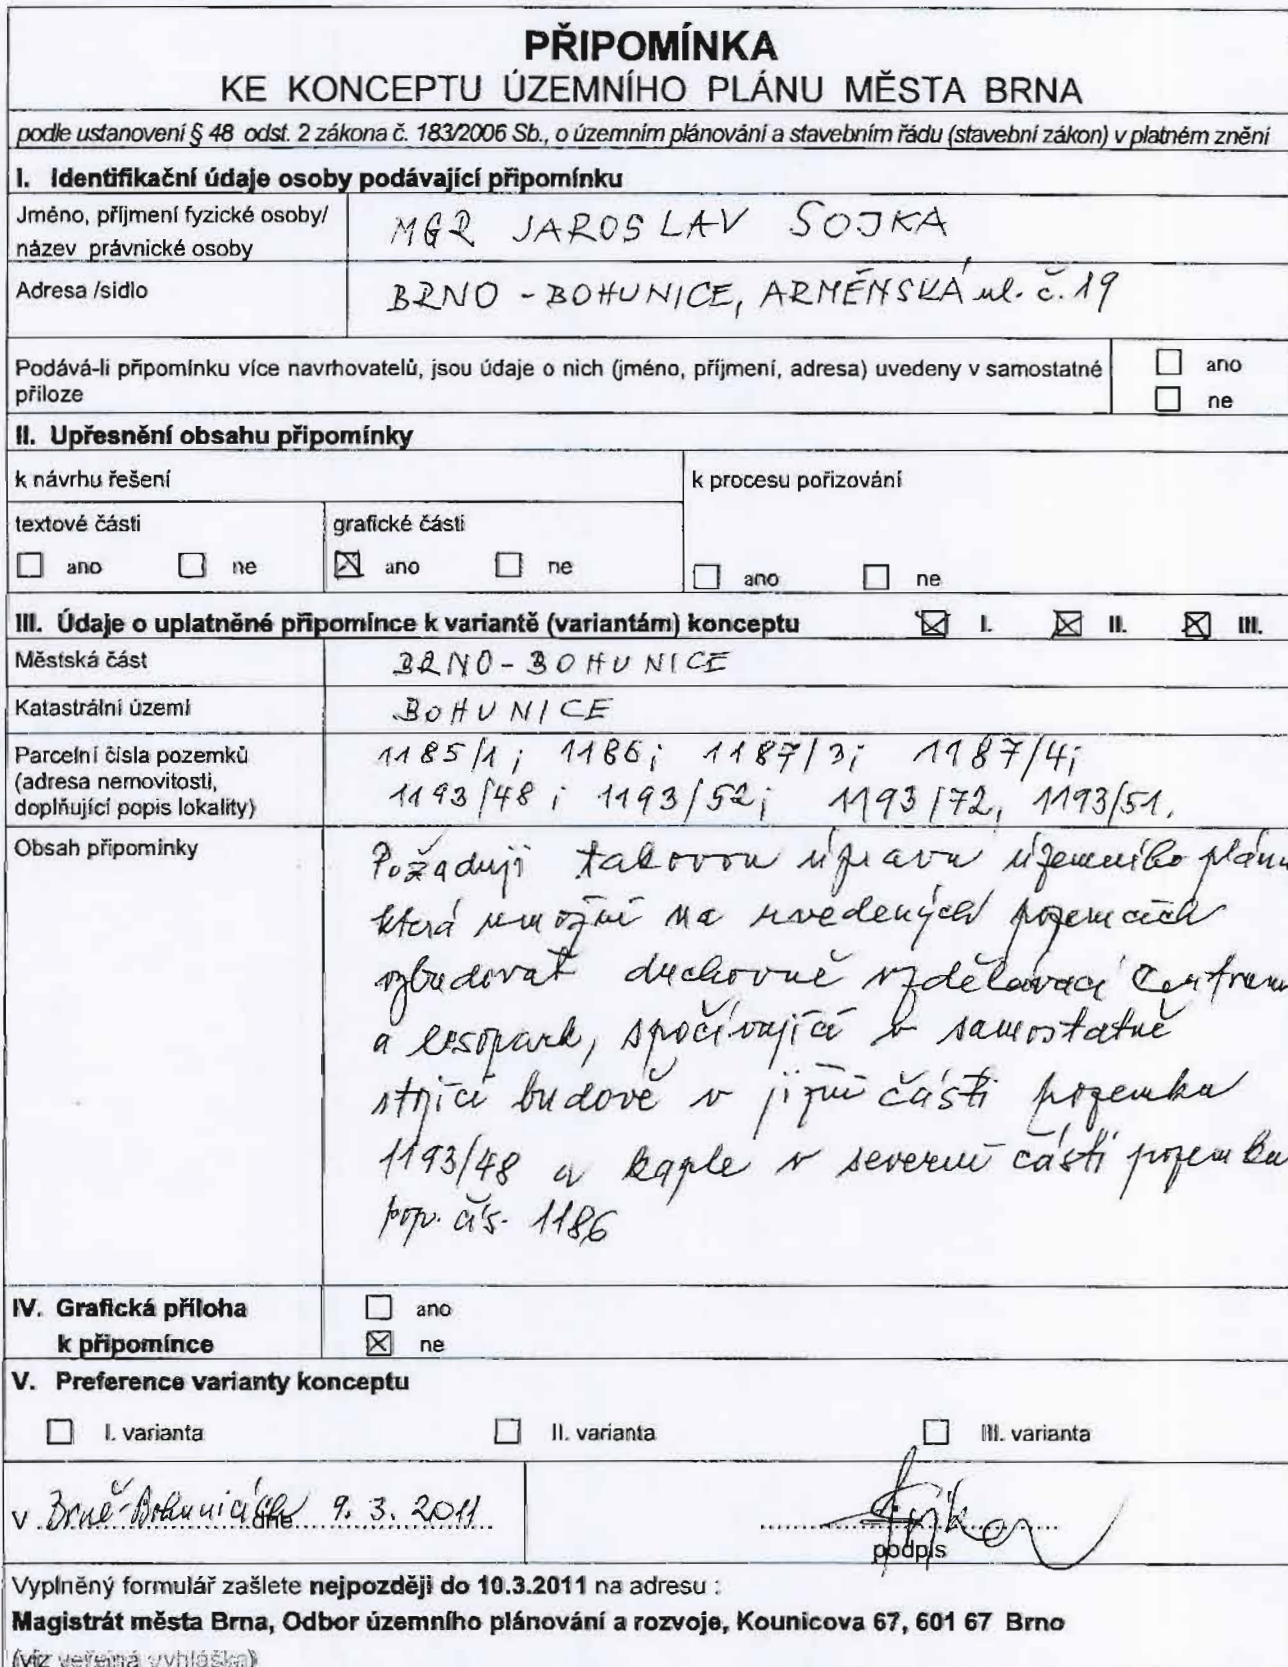 PŘIPOMÍNKA
KE KONCEPTU ÚZEMNÍHO PLÁNU MĚSTA BRNA
podle ustanovení § 48 odst. 2 zákona č. 183/2006 Sb., o územním plánování a stavebním řádu (stavební zákon) v platném znění
I. Identifikační údaje osoby podávající připomínku
Jméno, příjmení fyzické osoby/
název právnické osoby
MGR JAROSLAV SOJKA
Adresa /sídlo
BRNO - BOHUNICE, ARMÉNSKÁ ul. č. 19
Podává-li připomínku více navrhovatelů, jsou údaje o nich (jméno, příjmení, adresa) uvedeny v samostatné
příloze
☐ ano
☐ ne
II. Upřesnění obsahu připomínky
k návrhu řešení
k procesu pořizování
textové části
grafické části
☐ ano ☐ ne ☒ ano ☐ ne ☐ ano ☐ ne
III. Údaje o uplatněné připomínce k variantě (variantám) konceptu ☒ I. ☒ II. ☒ III.
Městská část
BRNO - BOHUNICE
Katastrální území
BOHUNICE
Parcelní čísla pozemků
(adresa nemovitosti,
doplňující popis lokality)
1185/1; 1186; 1187/3; 1187/4;
1193/48; 1193/52; 1193/72, 1193/51.
Obsah připomínky
Požaduji takovou úpravu územního plánu
která umožní na uvedených pozemcích
vybudovat duchovně vzdělávací centrum
a lesopark, spočívající v samostatně
stojící budově v jižní části pozemku
1193/48 a kaple v severní části pozemku
pop. čís. 1186
IV. Grafická příloha
k připomínce
☐ ano
☒ ne
V. Preference varianty konceptu
☐ I. varianta ☐ II. varianta ☐ III. varianta
v Brně-Bohunicích dne 9. 3. 2011
Sojka
podpis
Vyplněný formulář zašlete nejpozději do 10.3.2011 na adresu :
Magistrát města Brna, Odbor územního plánování a rozvoje, Kounicova 67, 601 67 Brno
(viz veřejná vyhláška)